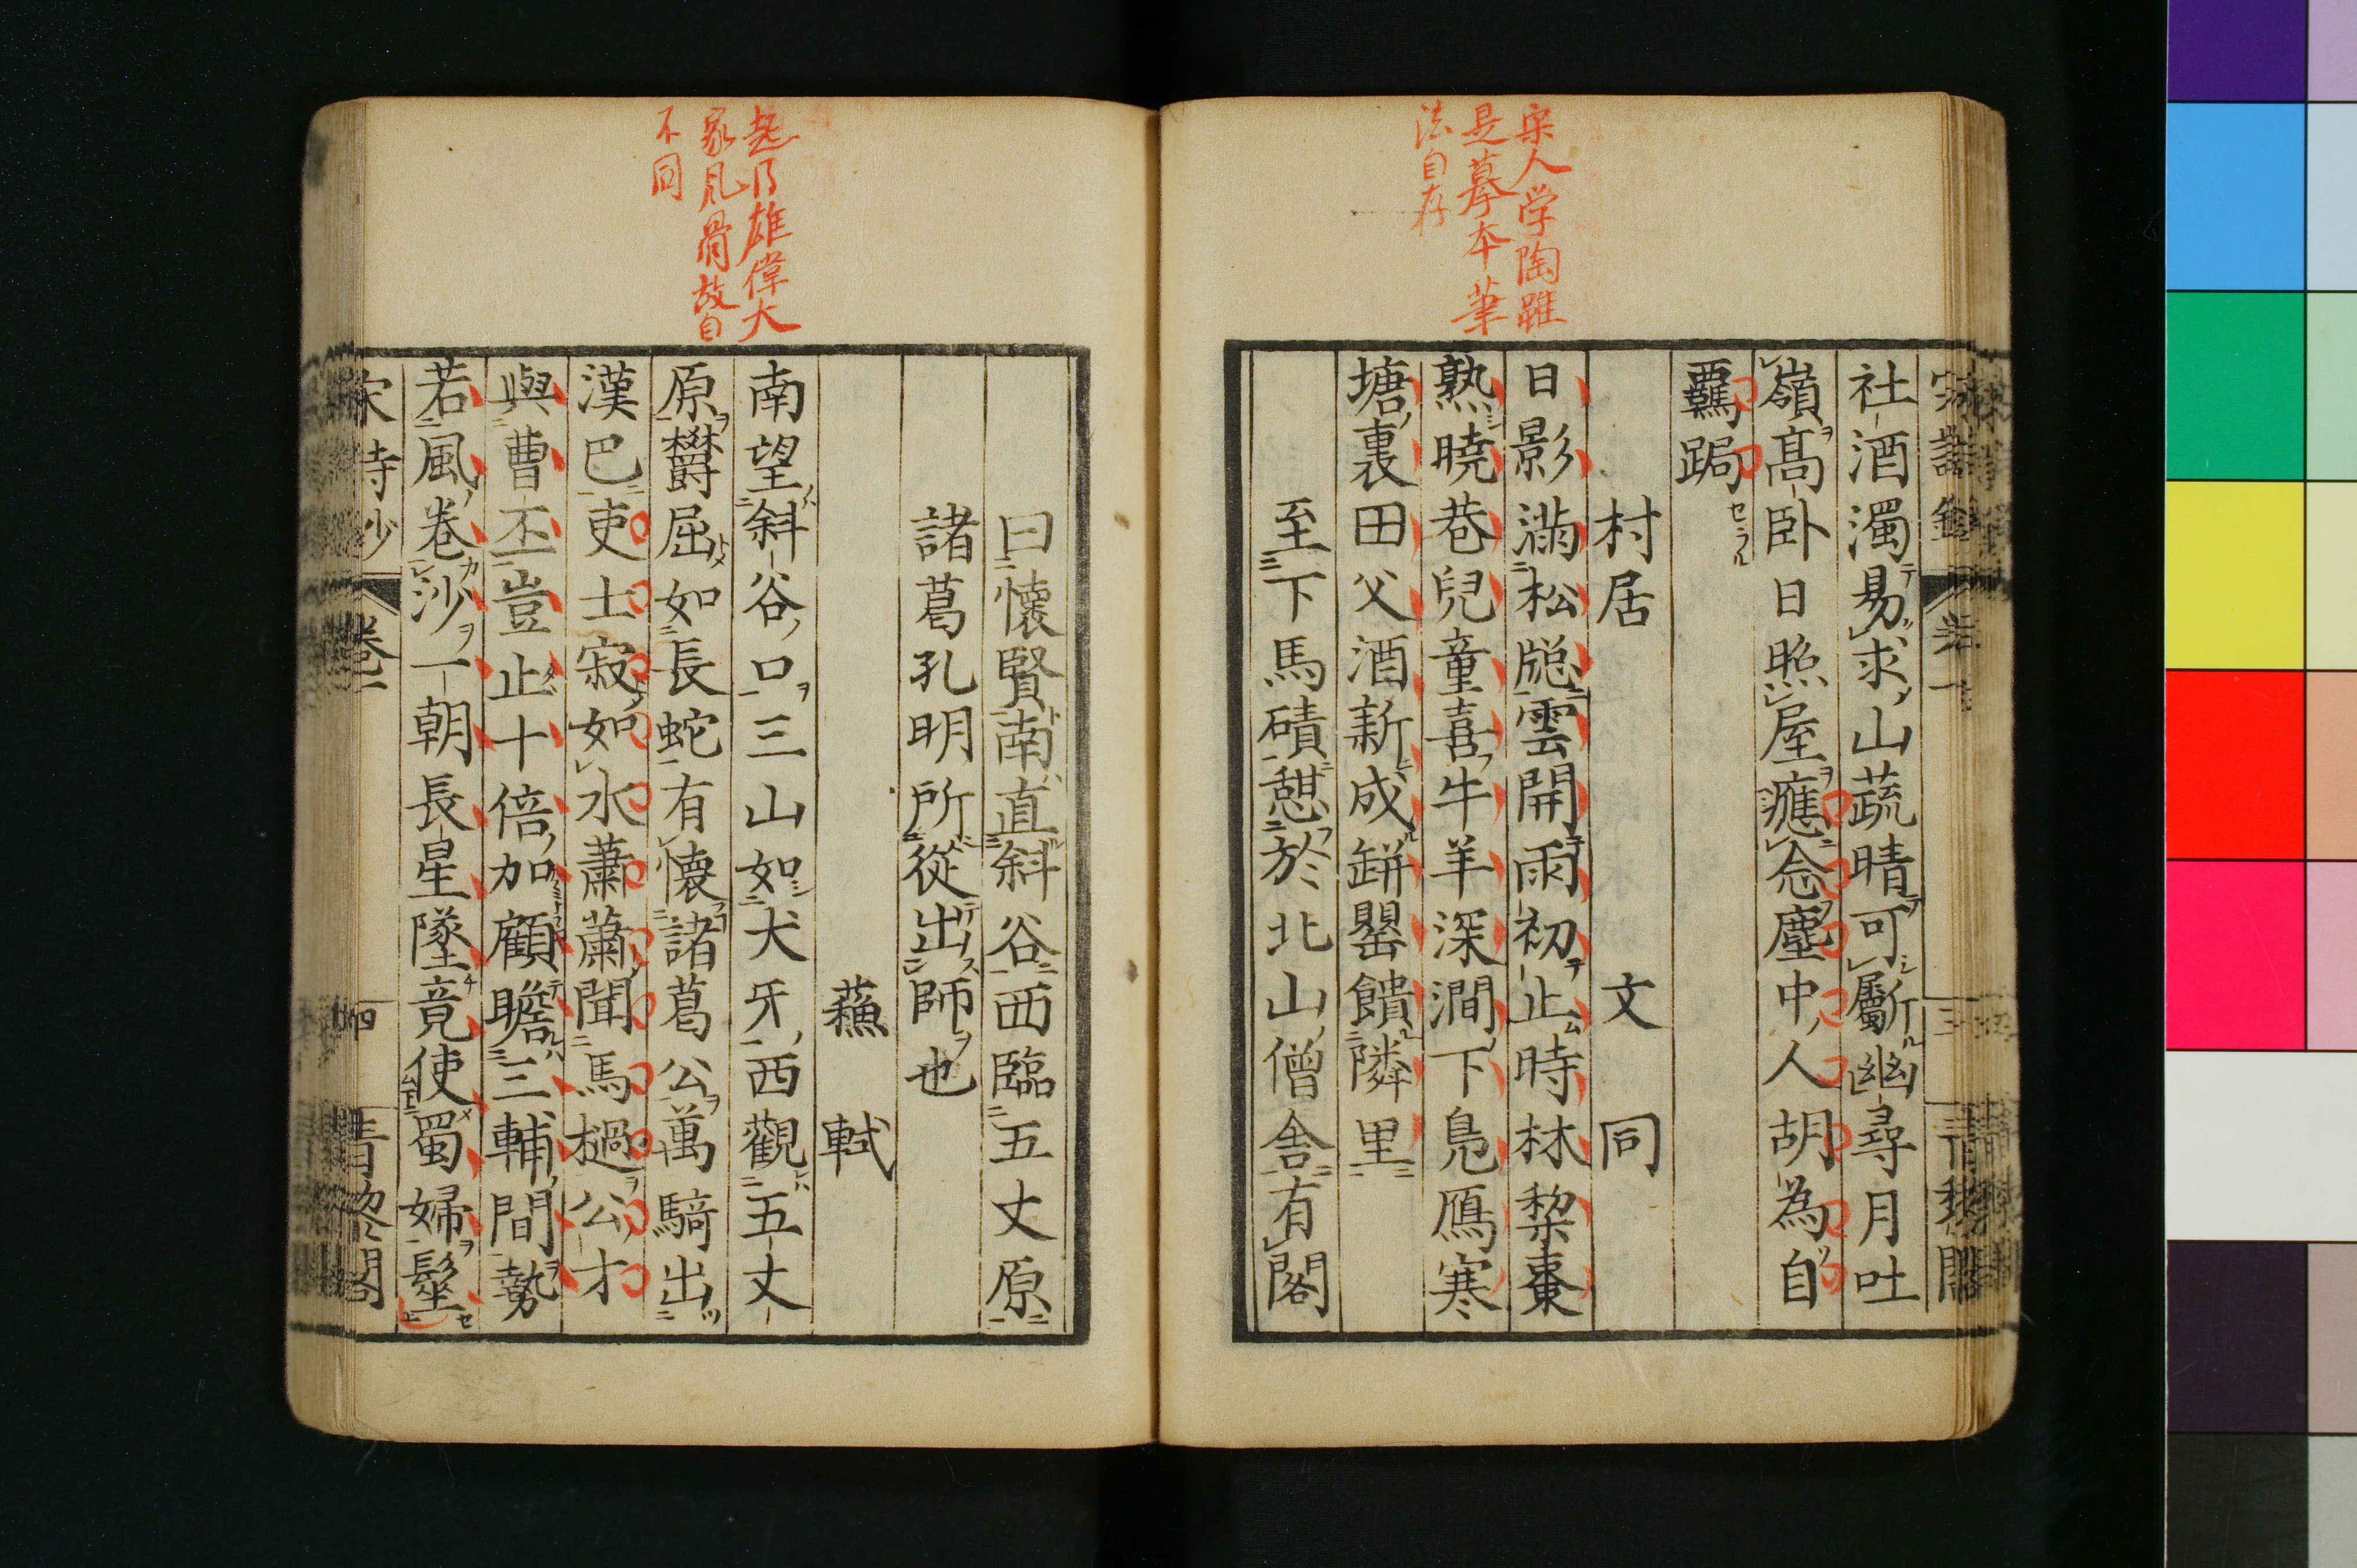 宋人学陶雖
是摹本筆
法自存
社酒濁易求山蔬晴可斸幽尋月吐
嶺高臥日照屋應念塵中人胡為自
羈跼
村居　文同
日影滿松牕雲開雨初止時林棃棗
熟曉巷兒童喜牛羊深澗下鳧鴈寒
塘裏田父酒新成缾罌饋隣里
至下馬磧憩於北山僧舍有閣
起乃雄偉大
家風骨故自
不同
曰懷賢南直斜谷西臨五丈原
諸葛孔明所從出師也
蘓軾
南望斜谷口三山如犬牙西觀五丈
原欝屈如長蛇有懷諸葛公萬騎出
漢巴吏士寂如水蕭蕭聞馬檛公才
與曹丕豈止十倍加顧瞻三輔間勢
若風卷沙一朝長星墜竟使蜀婦髽
宋詩鈔　卷一　四　青黎閣